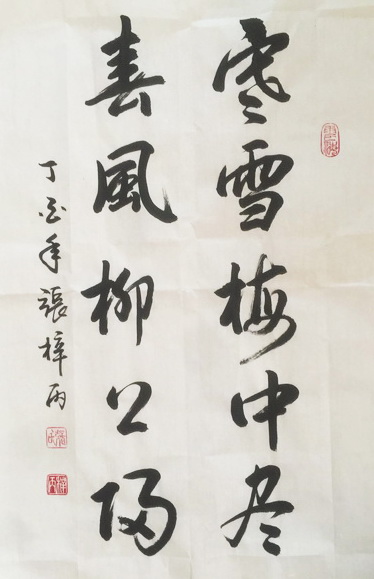 寒雪梅中尽
春風柳上归
丁酉年張梓雨